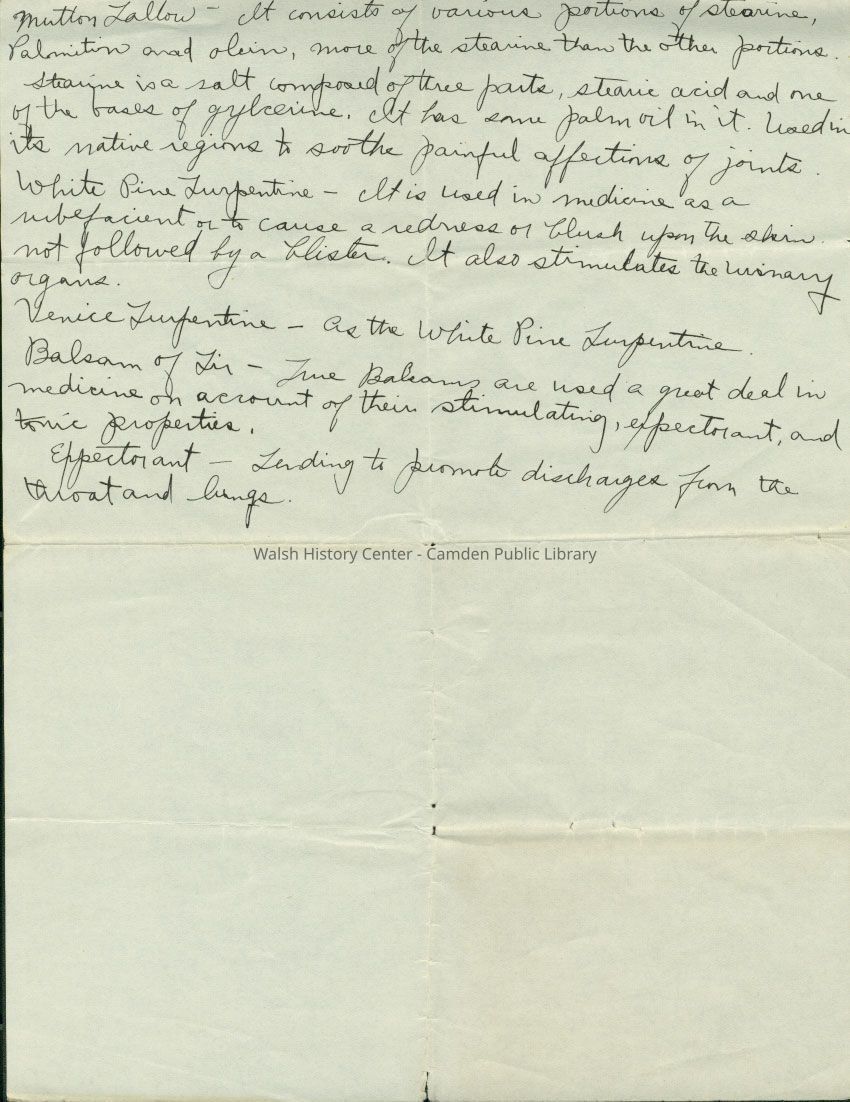 Mutton Tallow - It consists of various portions of stearine,
Palmitin anad olein, more of the stearine than the other portions.
Stearine is a salt composed of three parts, stearic acid and one
of the bases of gylcerine. It has some palm oil in it. Used in
its native regions to soothe painful affections of joints.
White Pine Turpentine - It is used in medicine as a
rubefacient or to cause a redness or blush upon the skin
not followed by a blister. It also stimulates the urinary
organs.
Venice Turpentine - As the White Pine Turpentine.
Balsam of Fir - True Balsams are used a great deal in
medicine on account of their stimulating, expectorant, and
tonic properties.
Expectorant - Tending to promote discharges from the
throat and lungs.
Walsh History Center - Camden Public Library